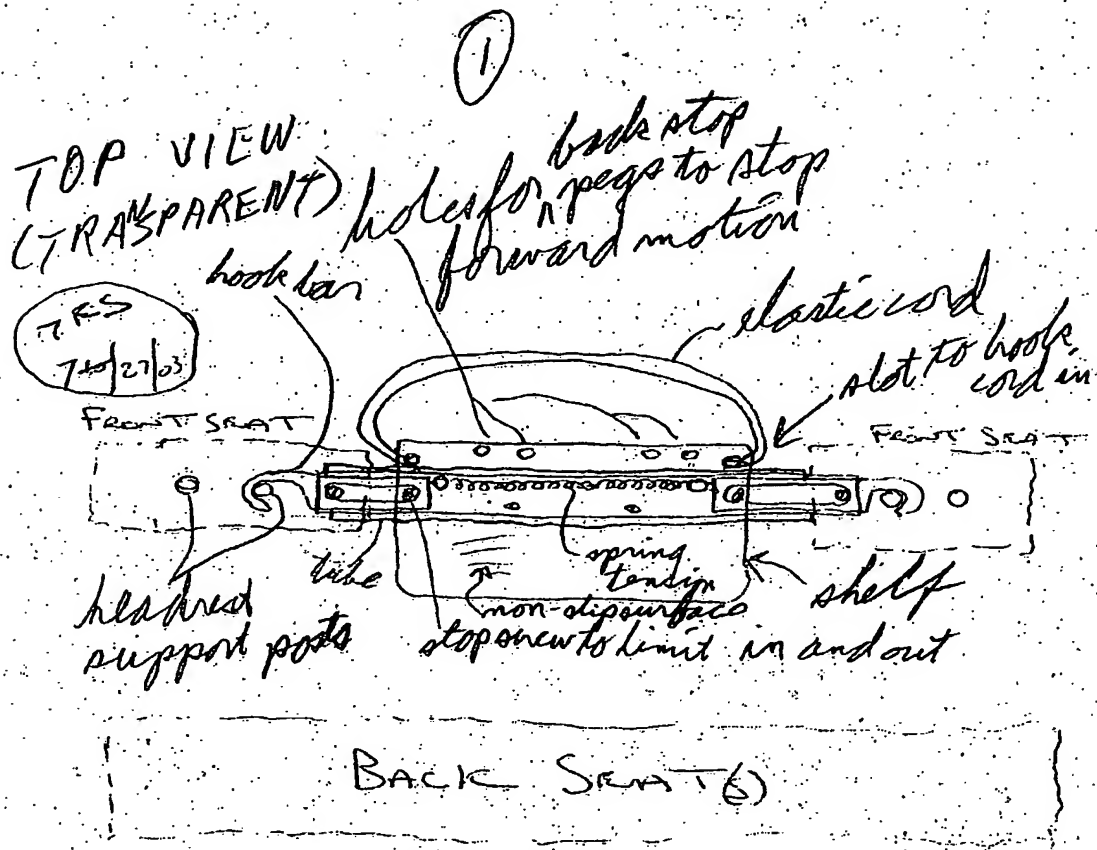 1
TOP VIEW
(TRANSPARENT)
holes for back stop
pegs to stop
forward motion
hook bar
elastic cord
slot to hook
cord in
FRONT SEAT
FRONT SEAT
tube
spring
tension
non-slip surface
shelf
headrest
support posts
stop screw to limit in and out
BACK SEAT(S)